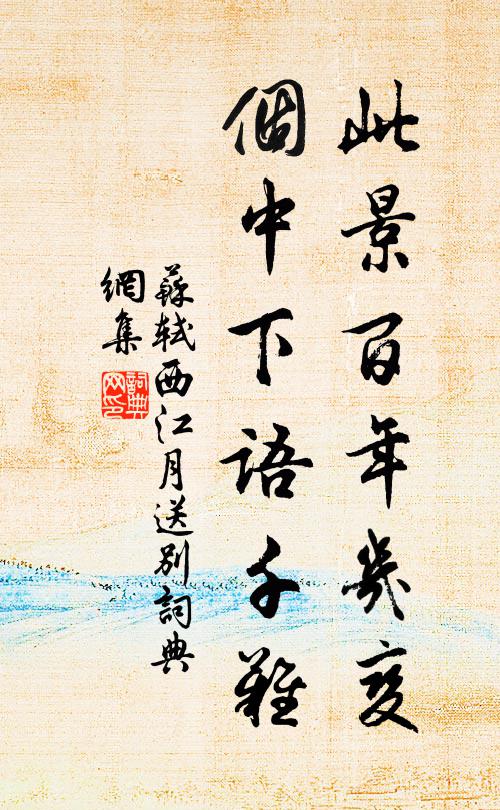 此景百年幾變
個中下語千難
蘇軾西江月送別詞典
網集
詞典
网印